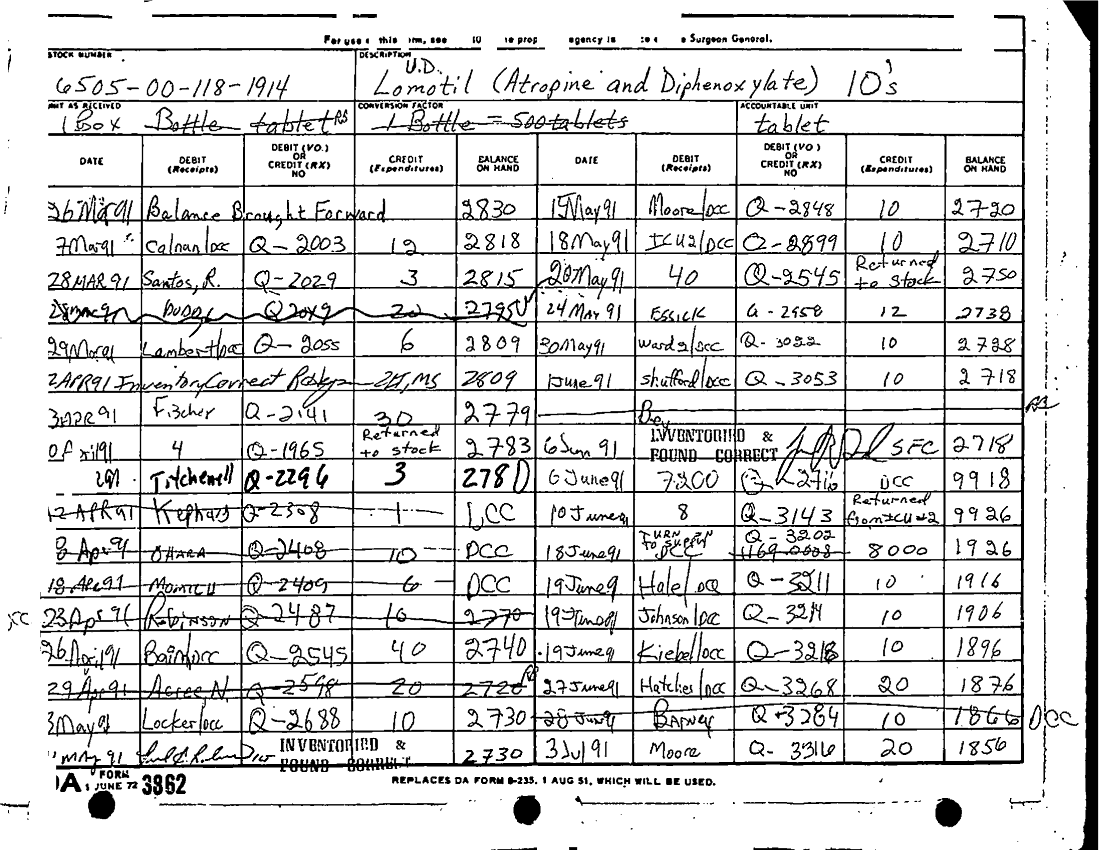 For use of this form, see 10 the prop agency is the Surgeon General.
STOCK NUMBER
6505-00-118-1914
DESCRIPTION
U.D.
Lomotil (Atropine and Diphenoxylate) 10's
UNIT AS RECEIVED
1 Box Bottle tablet
CONVERSION FACTOR
1 Bottle = 500 tablets
ACCOUNTABLE UNIT
tablet
DATE DEBIT (Receipts) DEBIT (VO.) OR CREDIT (RX) NO CREDIT (Expenditures) BALANCE ON HAND DATE DEBIT (Receipts) DEBIT (VO.) OR CREDIT (RX) NO CREDIT (Expenditures) BALANCE ON HAND
26 Mar 91 Balance Brought Forward 2830 15May91 Moore/DCC Q-2848 10 2720
7Mar91 Calnan/DCC Q-2003 12 2818 18May91 ICU2/DCC Q-2899 10 2710
28MAR91 Santos, R. Q-2029 3 2815 20May91 40 Q-2545 Returned to stock 2750
Q2049 20 2795 24 May 91 ESSICK Q-2958 12 2738
29Mar91 Lambert/DCC Q-2055 6 2809 30May91 Ward2/DCC Q-3022 10 2728
2APR91 Inventory Correct 2809 1June91 Shufford/DCC Q-3053 10 2718
3APR91 Fischer Q-2141 30 2779
April91 4 Q-1965 Returned to stock 2783 6Jun91 INVENTORIED & FOUND CORRECT SFC 2718
Titchenell Q-2296 3 2780 6June91 7200 DCC 9918
12 APR91 Kephars Q-2308 1 DCC 10June91 8 Q-3143 Returned from ICU#2 9926
8 Apr 91 OHARA Q-2408 10 DCC 18June91 TURN TO SUPPLY DCC Q-3202 1169-0008 8000 1926
18 Apr 91 Q-2409 6 DCC 19June9 Hale/DCC Q-3211 10 1916
DCC 23Apr91 Robinson Q-2487 10 2770 19June91 Johnson/DCC Q-3214 10 1906
26April91 Bain/DCC Q-2545 40 2740 19June9 Kiebel/DCC Q-3218 10 1896
29 Apr 91 Acree N. Q-2598 20 2720 27June91 Hatcher/DCC Q-3268 20 1876
3May91 Locker/DCC Q-2688 10 2730 28 Jun91 Barney Q-3284 10 1866 DCC
May 91 INVENTORIED & FOUND CORRECT 2730 3Jul91 Moore Q-3316 20 1856
DA FORM 1 JUNE 72 3862
REPLACES DA FORM 8-235, 1 AUG 51, WHICH WILL BE USED.